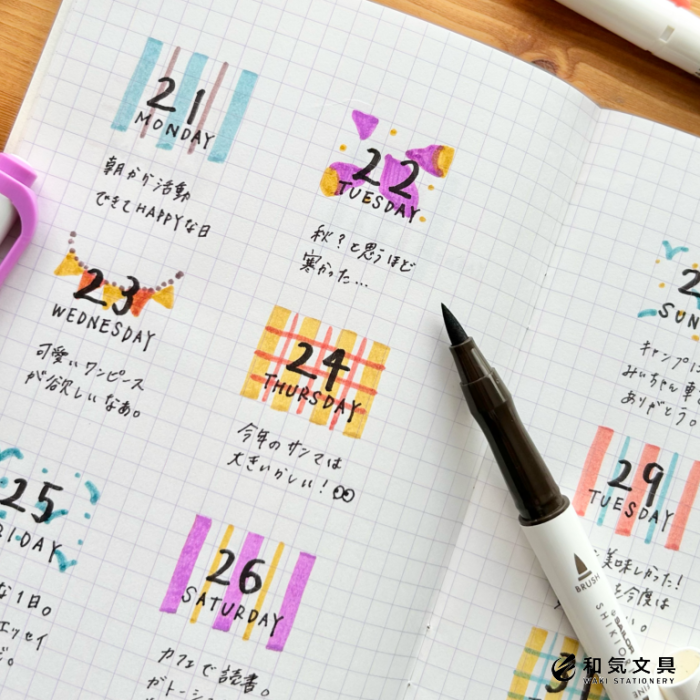 21
MONDAY
朝から活動
できてHAPPYな日
22
TUESDAY
秋？と思うほど
寒かった…
23
WEDNESDAY
可愛いワンピース
が欲しいなあ。
24
THURSDAY
今年のサンマは
大きいらしい！
25
RIDAY
な1日。
エッセイ
26
SATURDAY
カフェで読書。
2
SUN
キャンプに
みぃちゃん車
ありがとう。
29
TUESDAY
美味しかった！
を今度は
BRUSH
SHIKIO
3
和気文具
WAKI STATIONERY